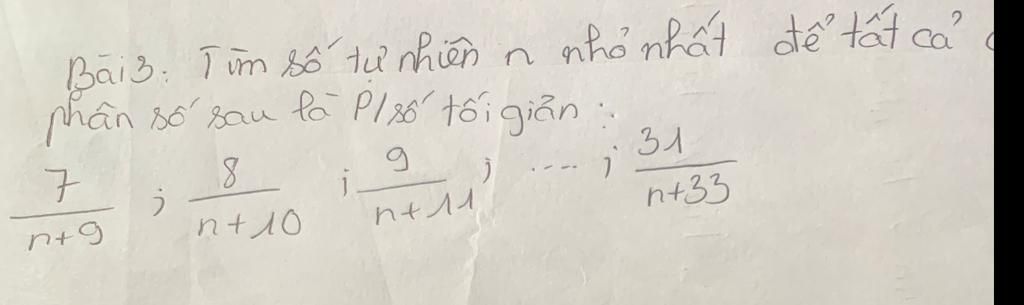 Bài 3: Tìm số tự nhiên n nhỏ nhất để tất cả
phân số sau là P/số tối giản :
7/n+9 ; 8/n+10 ; 9/n+11 ; .... ; 31/n+33